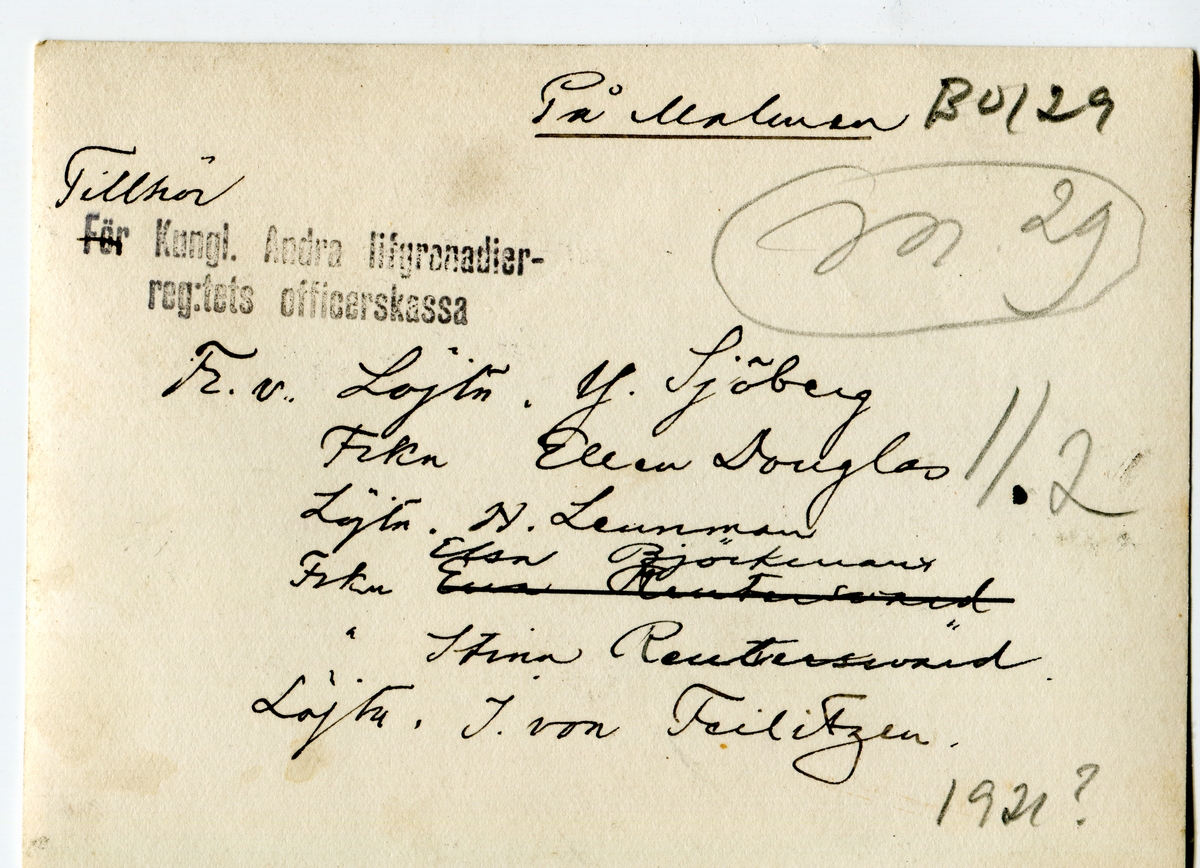 På Malmen BO/29
Tillhör
För Kungl. Andra lifgrenadier-
reg:tets officerskassa
M. 29
Fr. v. Löjtn. Y. Sjöberg
Frkn Ellen Douglas
11.2
Löjtn. N. Leunman
Elsa Björkman
Frkn Eva Reuterswärd
" Stina Reuterswärd.
Löjtn. J. von Feilitzen.
1921?